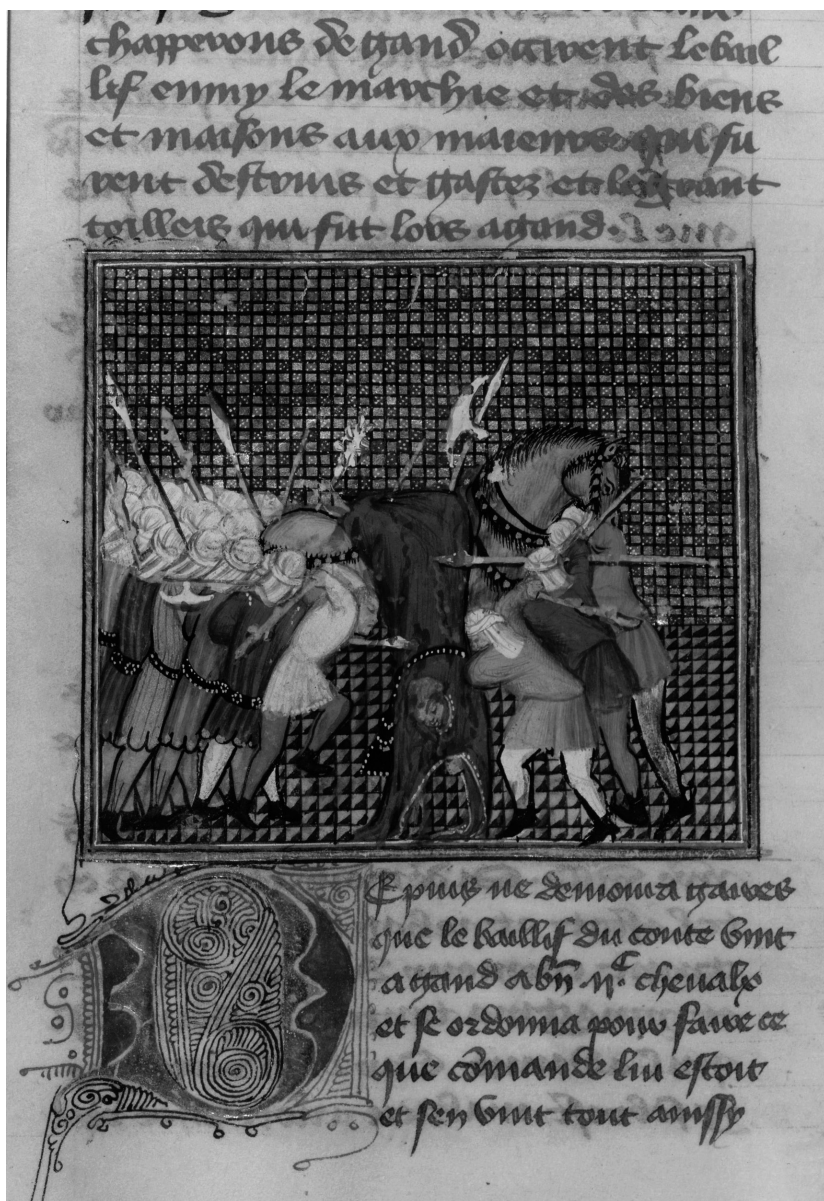 chapperons de gand occirent le bail
lif enmy le marchie et des biens
et maisons aux maieurs qui fu
rent destruis et gastez et
toilleis qui fut lors a gand.
Depuis ne demoura gaires
que le baillif du conte vint
a gand a bn̄ ijc chevalx
et se ordonna pour faire ce
que cōmande lui estoit
et sen vint tout aussy